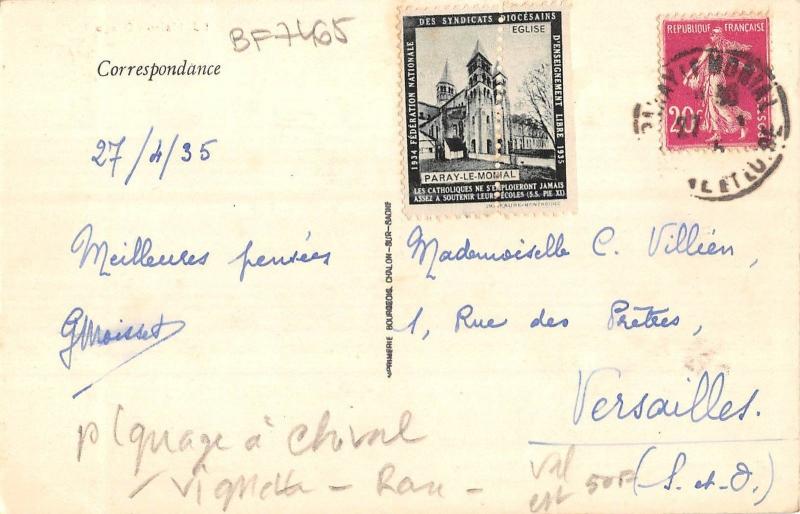 BF7465
Correspondance
27/4/35
Meilleures pensées
GMoisset
piquage à chival
vignette - Rare -
val
est 50F
IMPRIMERIE BOURGEOIS, CHALON-SUR-SAONE
DES SYNDICATS DIOCÉSAINS
1934 FÉDÉRATION NATIONALE
D'ENSEIGNEMENT LIBRE 1935
EGLISE
PARAY-LE-MONIAL
LES CATHOLIQUES NE S'EMPLOIERONT JAMAIS
ASSEZ A SOUTENIR LEURS ÉCOLES (S.S. PIE XI)
REPUBLIQUE FRANÇAISE
20c
POSTES
PARAY LE MONIAL
Mademoiselle C. Villien,
1, Rue des Prêtres,
Versailles.
(S.-et-O.)